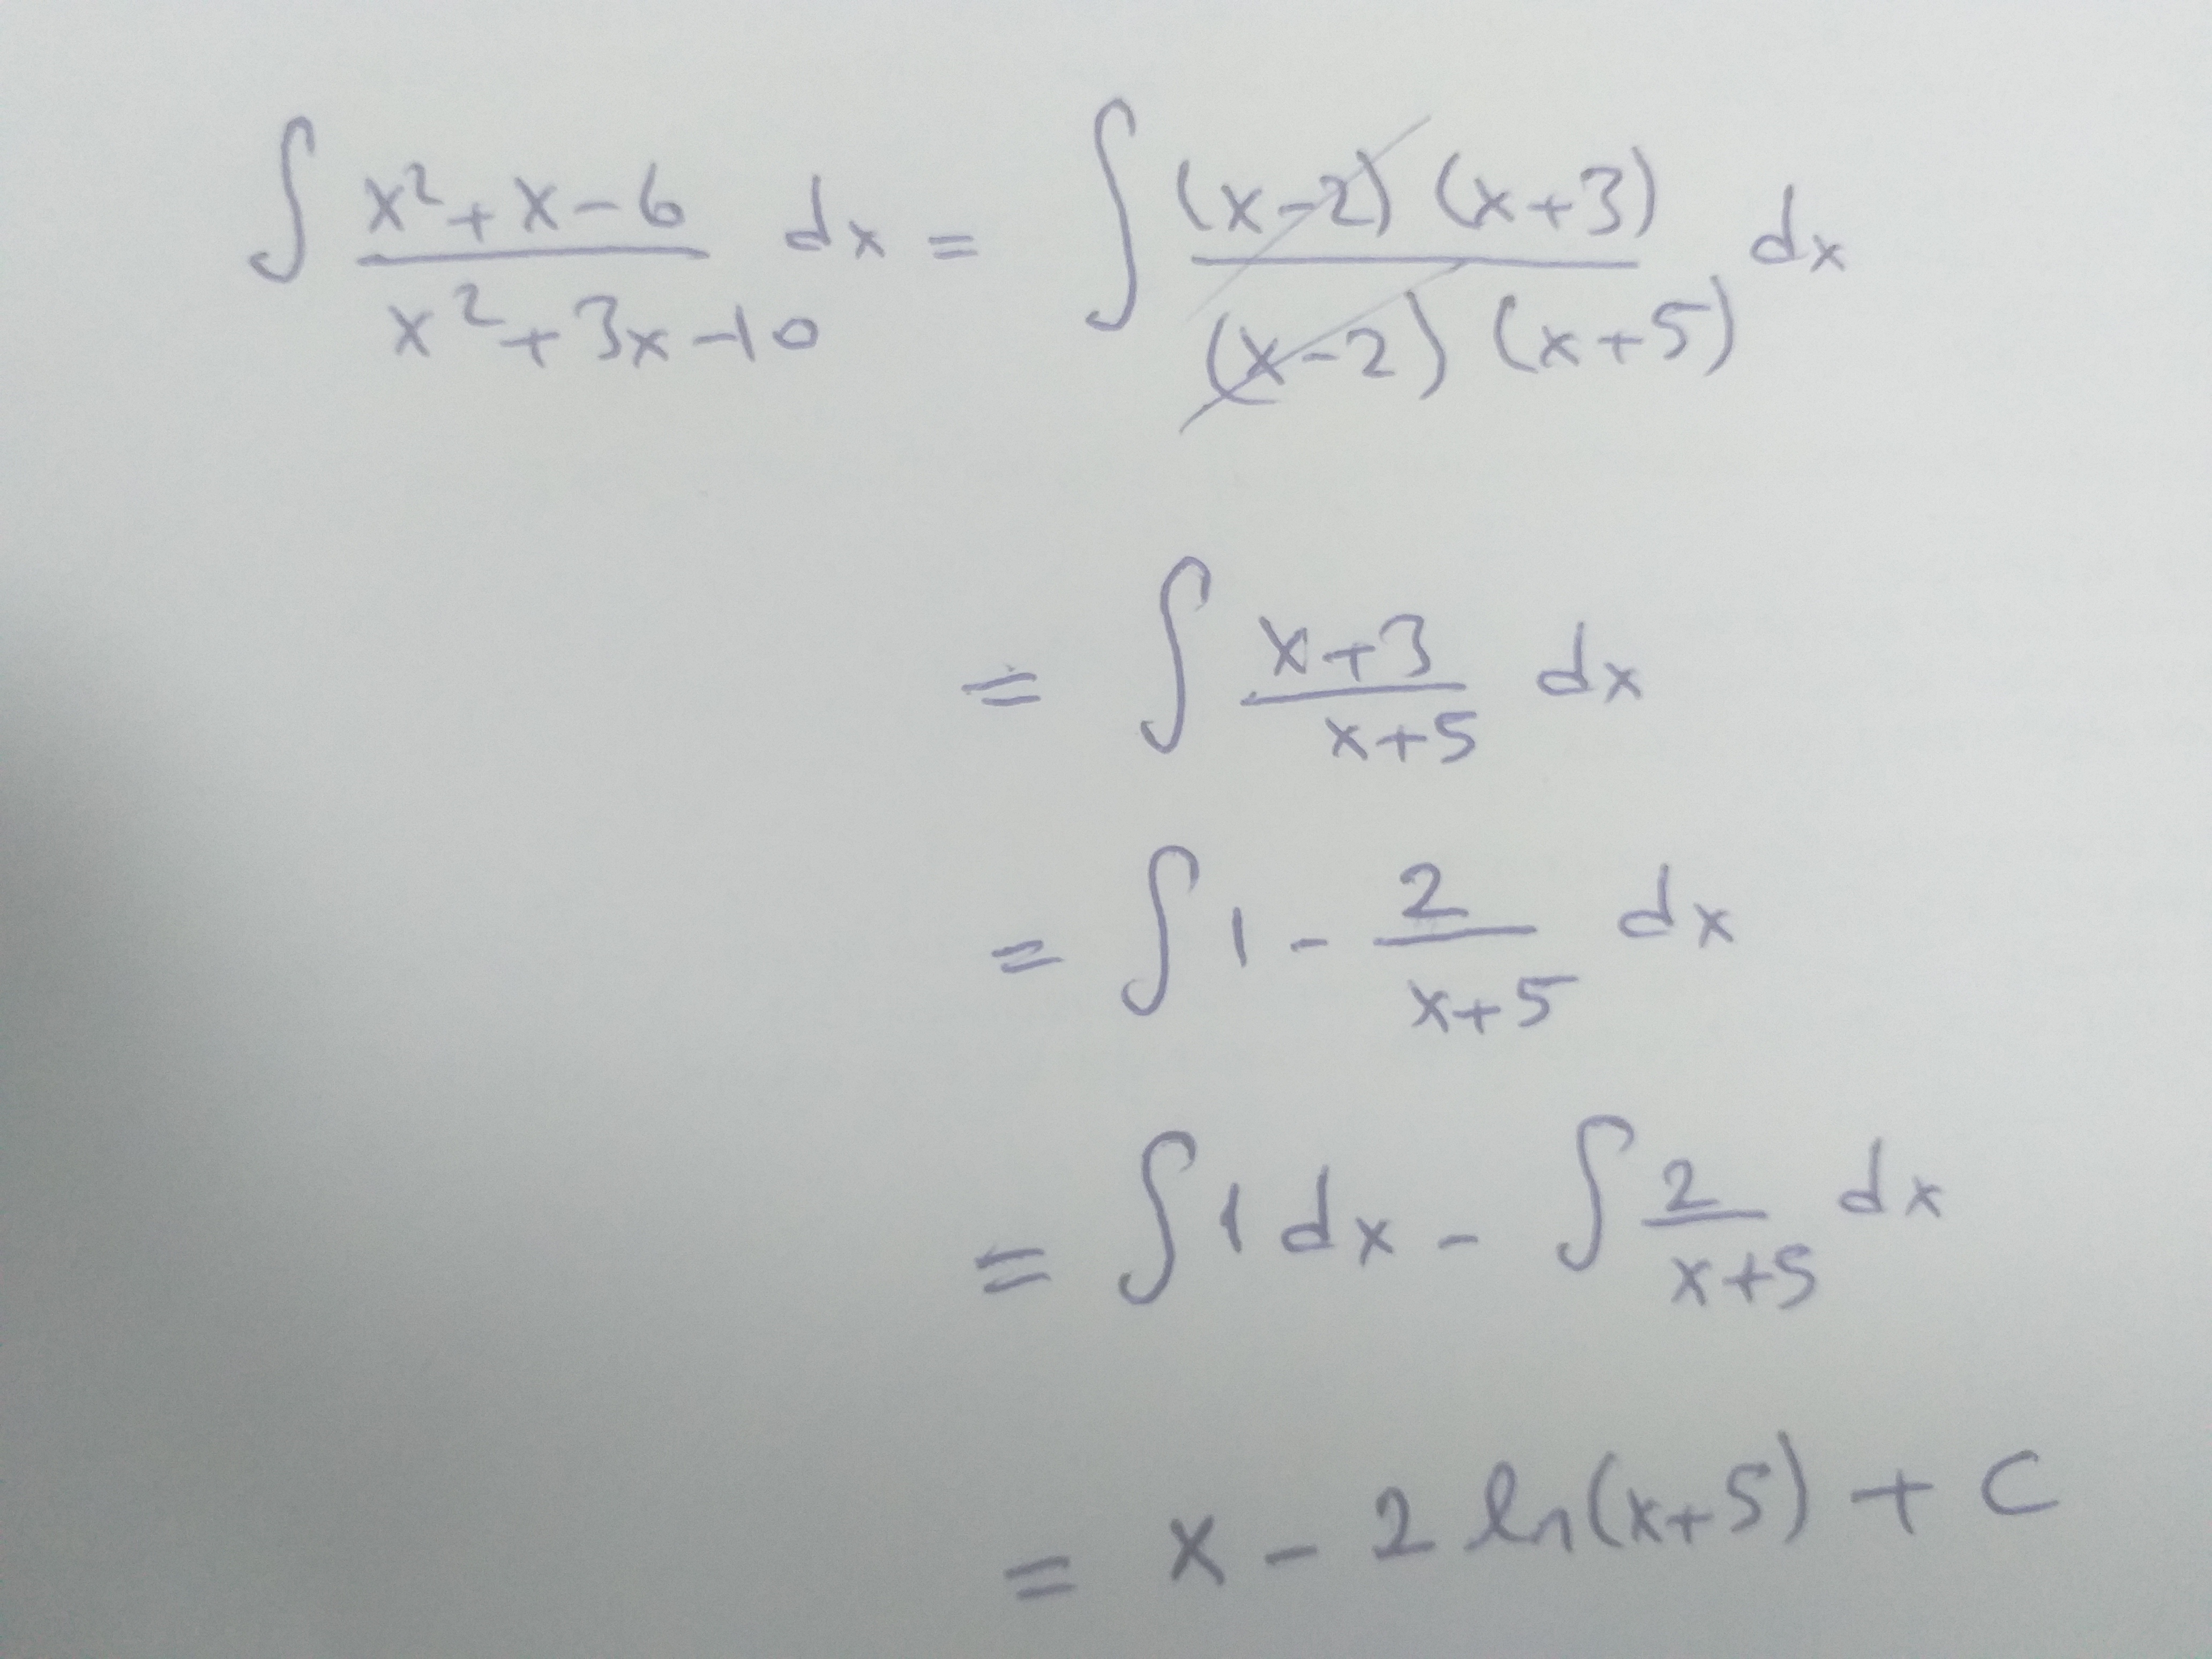 ∫ (x² + x - 6)/(x² + 3x - 10) dx = ∫ ((x-2)(x+3))/((x-2)(x+5)) dx
= ∫ (x+3)/(x+5) dx
= ∫ 1 - 2/(x+5) dx
= ∫ 1 dx - ∫ 2/(x+5) dx
= x - 2 ln(x+5) + C